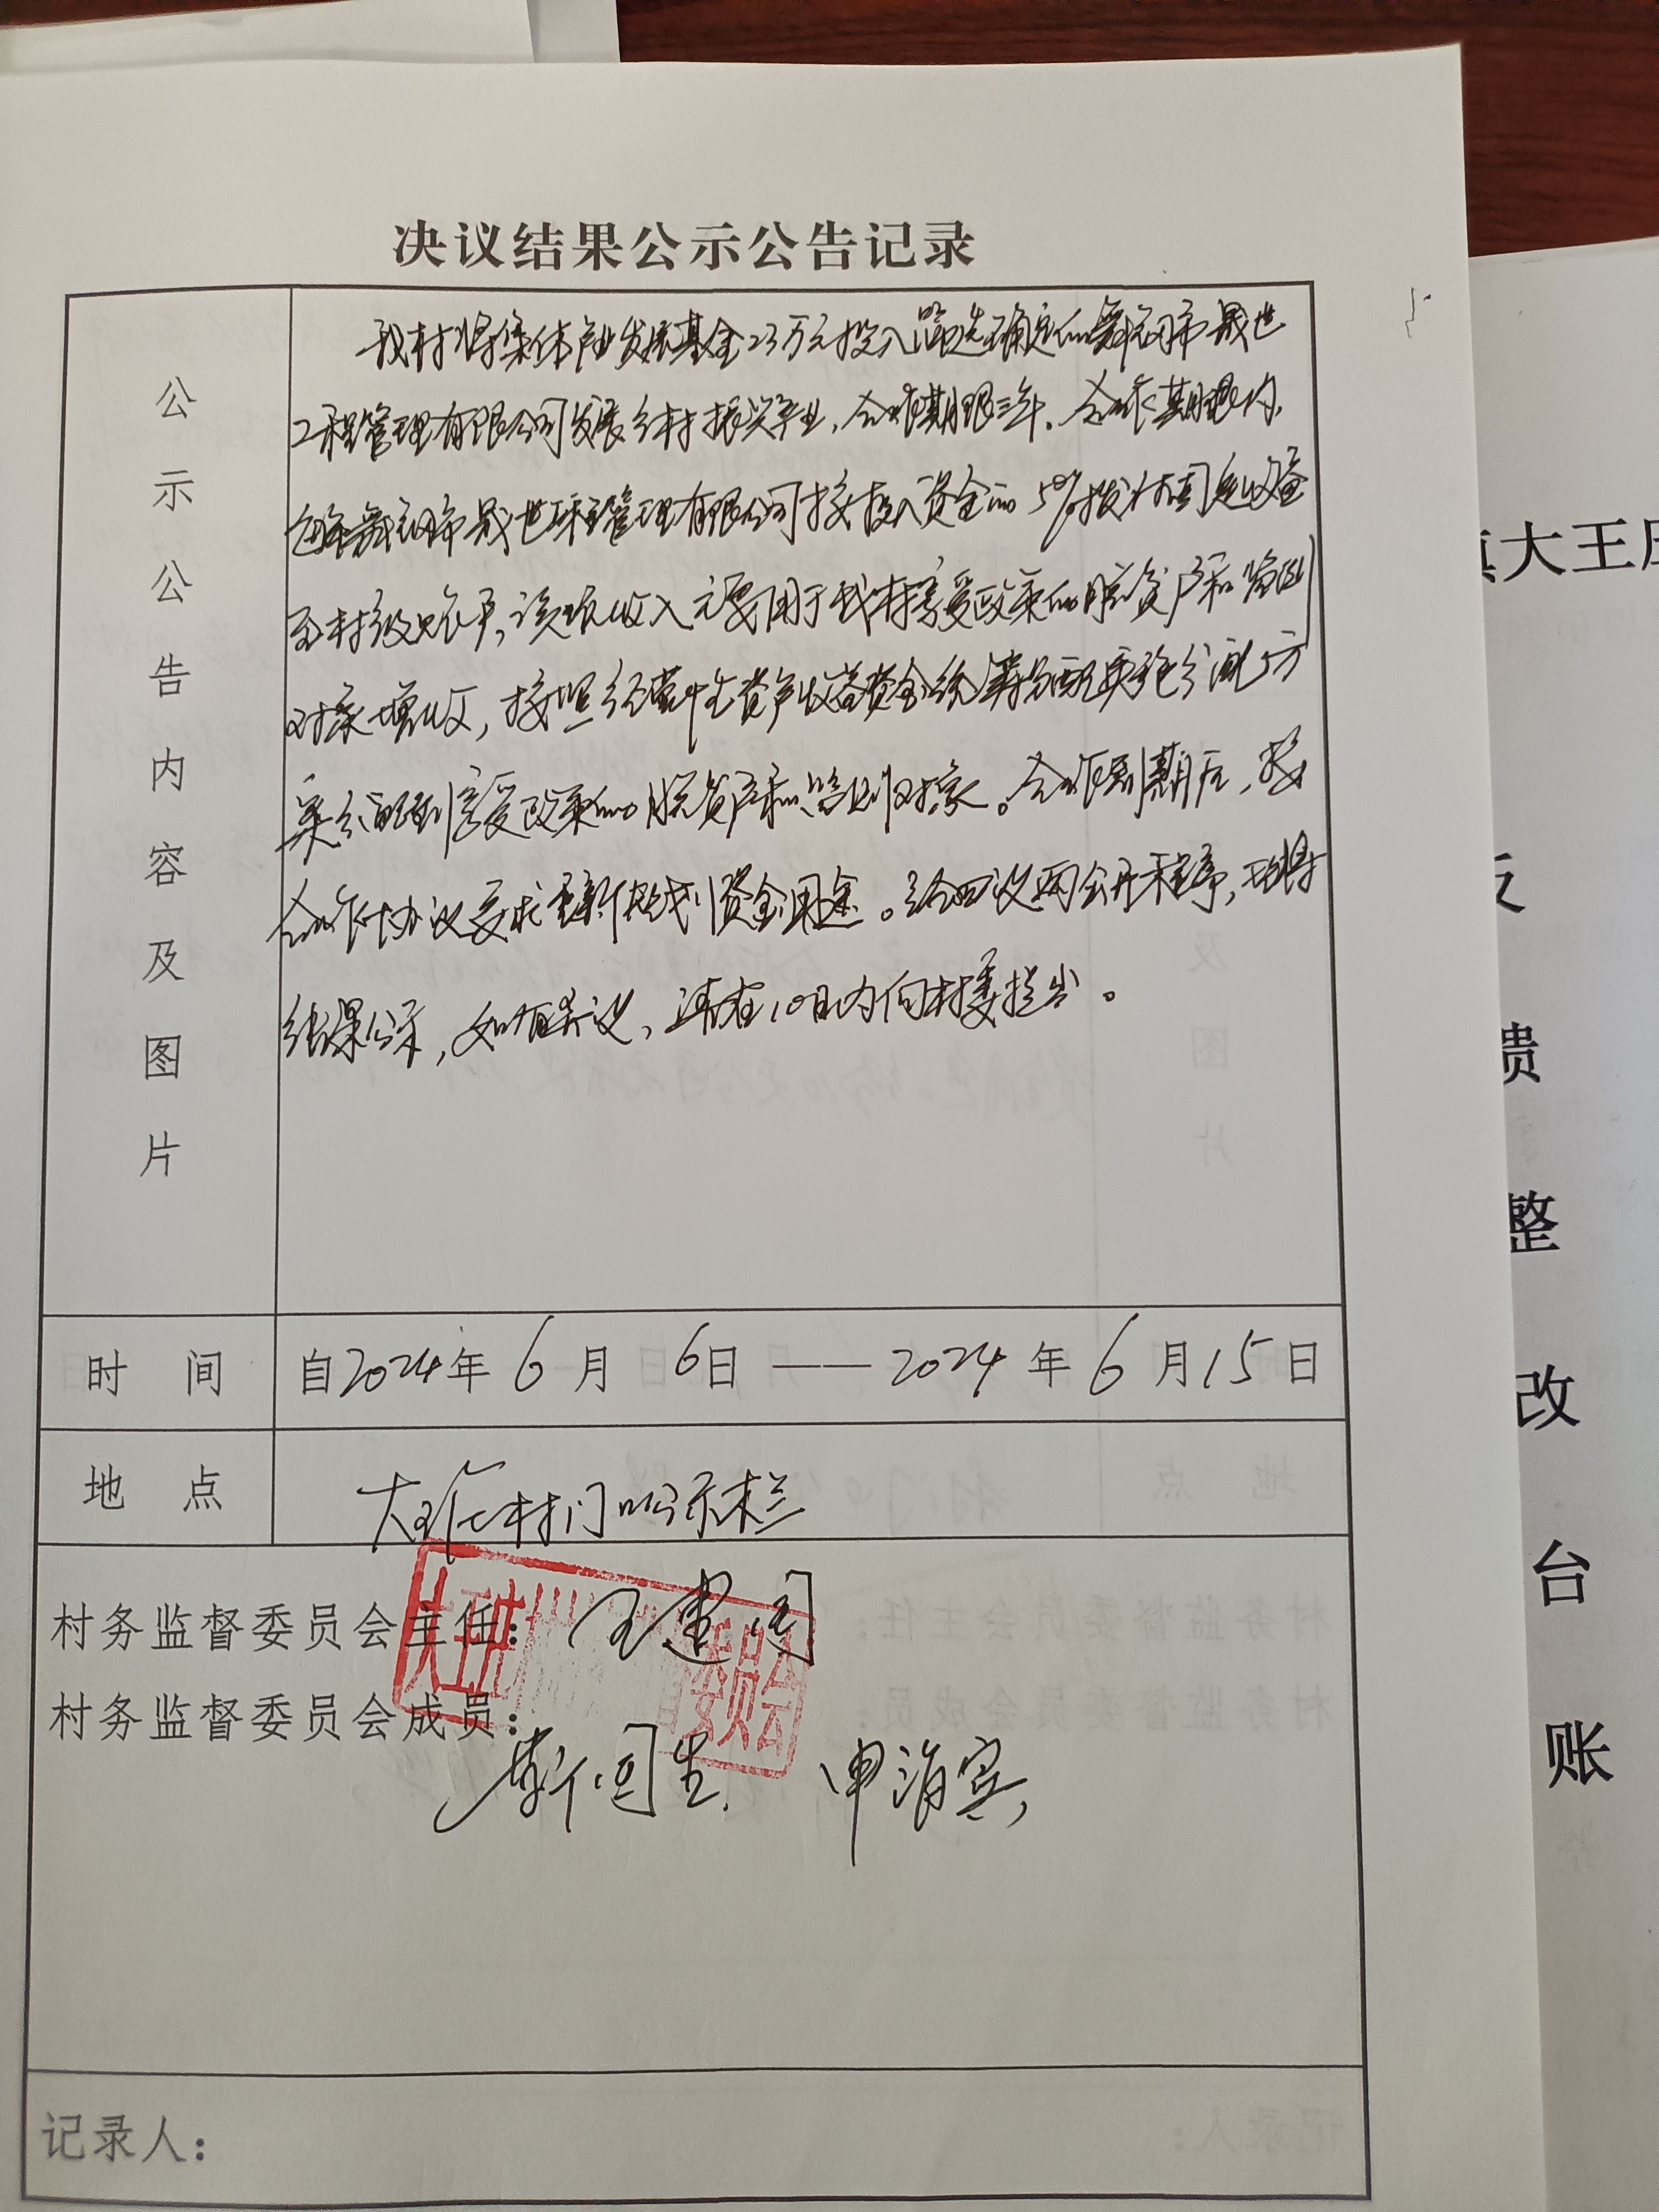 决议结果公示公告记录
公示公告内容及图片
我村将集体产业发展基金23万元投入筛选确定的舞钢市晟世
工程管理有限公司发展乡村振兴产业，合作期限三年。合作期限内，
每年舞钢市晟世工程管理有限公司按投入资金的5%拨付固定收益
至村级账户，该项收入主要用于我村享受政策的脱贫户和监测
对象增收，按照经营性资产收益资金统筹分配实施分配方
案分配到享受政策的脱贫户和监测对象。合作到期后，按
合作协议要求重新规划资金用途。经四议两公开程序，现将
结果公示，如有异议，请在10日内向村委提出。
时间
自2024年6月6日——2024年6月15日
地点
大王庄村门口公示栏
村务监督委员会主任：王建国
村务监督委员会成员：
靳国生 申海宾
大王庄村 委员会
记录人：
大王庄
反
馈
整
改
台
账